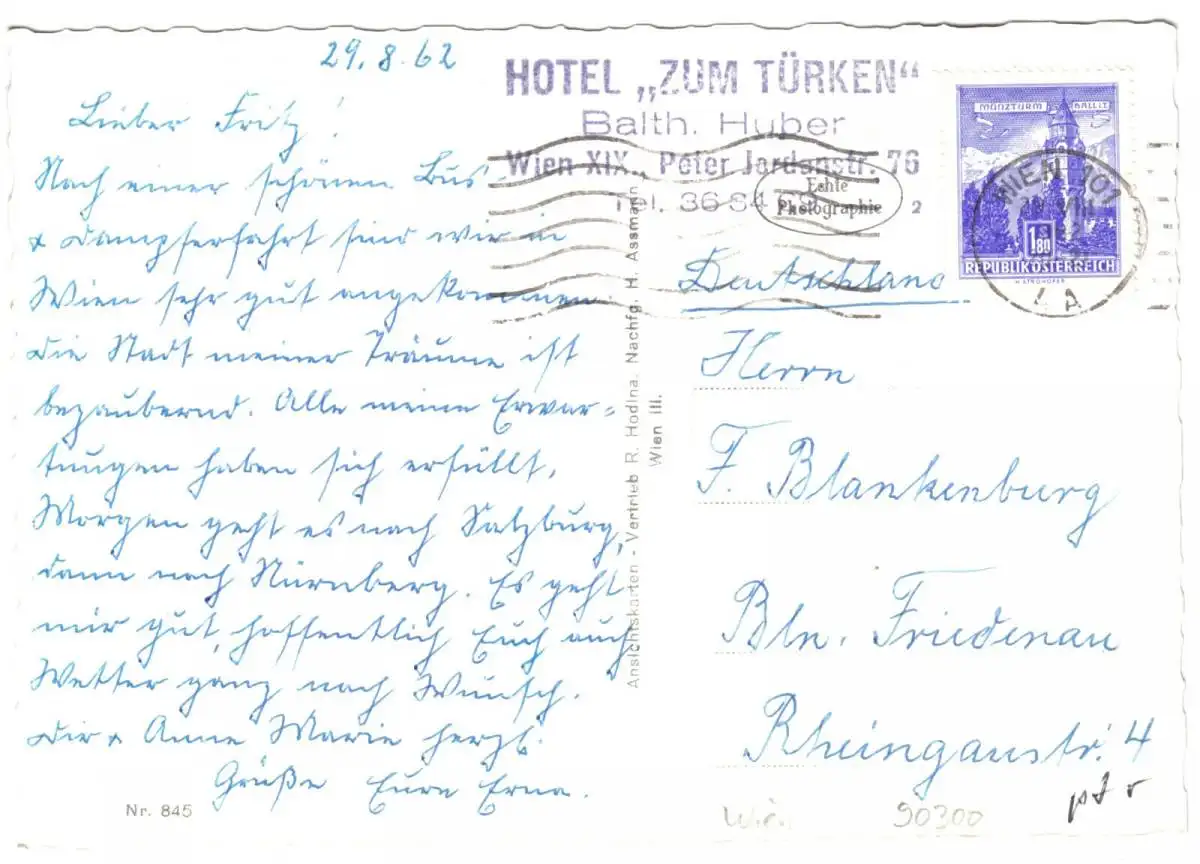 29.8.62
Lieber Fritz!
Nach einer schönen Bus-
& Dampferfahrt sind wir in
Wien sehr gut angekommen.
Die Stadt meiner Träume ist
bezaubernd. Alle meine Erwar=
tungen haben sich erfüllt.
Morgen geht es nach Salzburg,
dann nach Nürnberg. Es geht
mir gut, hoffentlich Euch auch.
Wetter ganz nach Wunsch.
Dir & Anne Marie herzl.
Grüße Eure Erna.
Nr. 845
Ansichtskarten - Vertrieb R. Hodina, Nachfg. H. Assmann
Wien III.
HOTEL „ZUM TÜRKEN“
Balth. Huber
Wien XIX., Peter Jordanstr. 76
Tel. 36 84
Echte
Photographie
2
MÜNZTURM HALL I.T.
1.80
REPUBLIK ÖSTERREICH
H. STROHOFER
WIEN 107
4 A
Deutschland
Herrn
F. Blankenburg
Bln. Friedenau
Rheingaustr. 4
90300